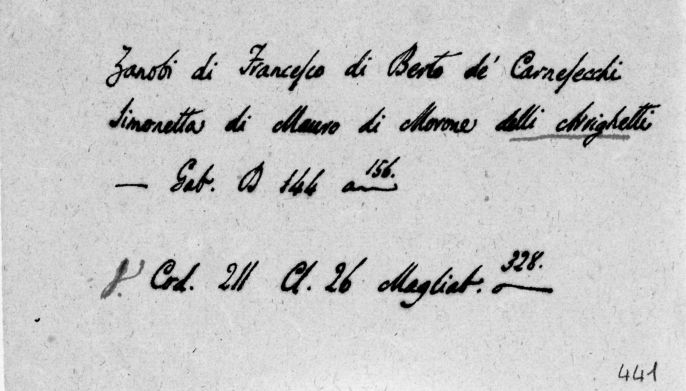 Zanobi di Francesco di Berto de' Carnesecchi
Simonetta di Mauro di Morone delli Arrighetti
— Gab. D 144 a 156.
Cod. 211 Cl. 26 Magliab. 328.
441